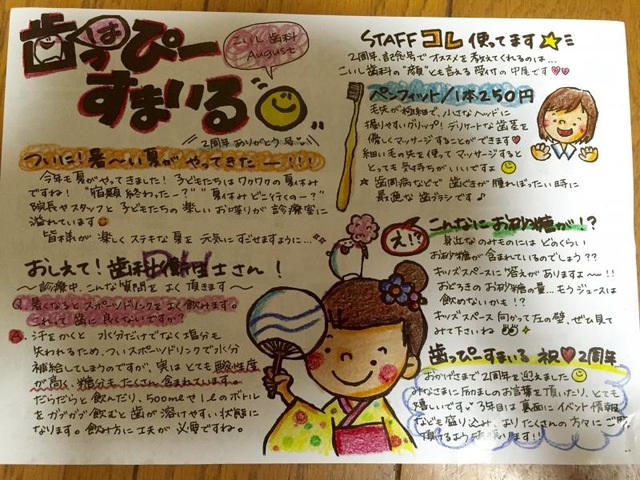 歯っぴー
すまいる
は
こいし歯科
August
2周年ありがとう号
ついに!暑〜い夏がやってきたー!!!
今年も夏がやってきました!子どもたちはワクワクの夏休み
ですね! "宿題終わったー?" "夏休みどこ行くのー?"
院長やスタッフと子どもたちの楽しいお喋りが診療室に
溢れています
皆様が楽しくステキな夏を元気にすごせますように…
おしえて!歯科衛生士さん!
〜診療中、こんな質問をよく頂きます〜
Q.暑くなるとスポーツドリンクをよく飲みます。
これって歯に良くないですか?
A.汗をかくと水分だけでなく塩分も
失われるため、ついスポーツドリンクで水分
補給してしまうのですが、実はとても酸性度
が高く、糖分もたくさん含まれています。
だらだらと飲んだり、500mlや1lのボトル
をガブガブ飲むと歯が溶けやすい状態に
なります。飲み方に工夫が必要ですね。
STAFF コレ 使ってます
2周年記念号でオススメを教えてくれるのは…
こいし歯科の"顔"とも言える受付の中尾です
ペーフェット/1本250円
毛先が極細で、小さなヘッドに
握りやすいグリップ!デリケートな歯茎を
優しくマッサージすることができます
細い毛の先を使ってマッサージすると
とっても気持ちがいいですよ
★歯周病などで歯ぐきが腫れぼったい時に
最適な歯ブラシです♪
え!?
こんなにお砂糖が!?
身近なのみものにはどのくらい
お砂糖が含まれているのでしょう??
キッズスペースに答えがありますよ〜!!
おどろきのお砂糖の量…もうジュースは
飲めないかも!?
キッズスペース向かって左の壁、ぜひ見て
みて下さいね
歯っぴーすまいる 祝♥2周年
おかげさまで2周年を迎えました
みなさまに励ましのお言葉を頂いたり、とても
嬉しいです。3年目は裏面にイベント情報
なども盛り込み、よりたくさんの方々にご愛
頂けるよう頑張ります!!